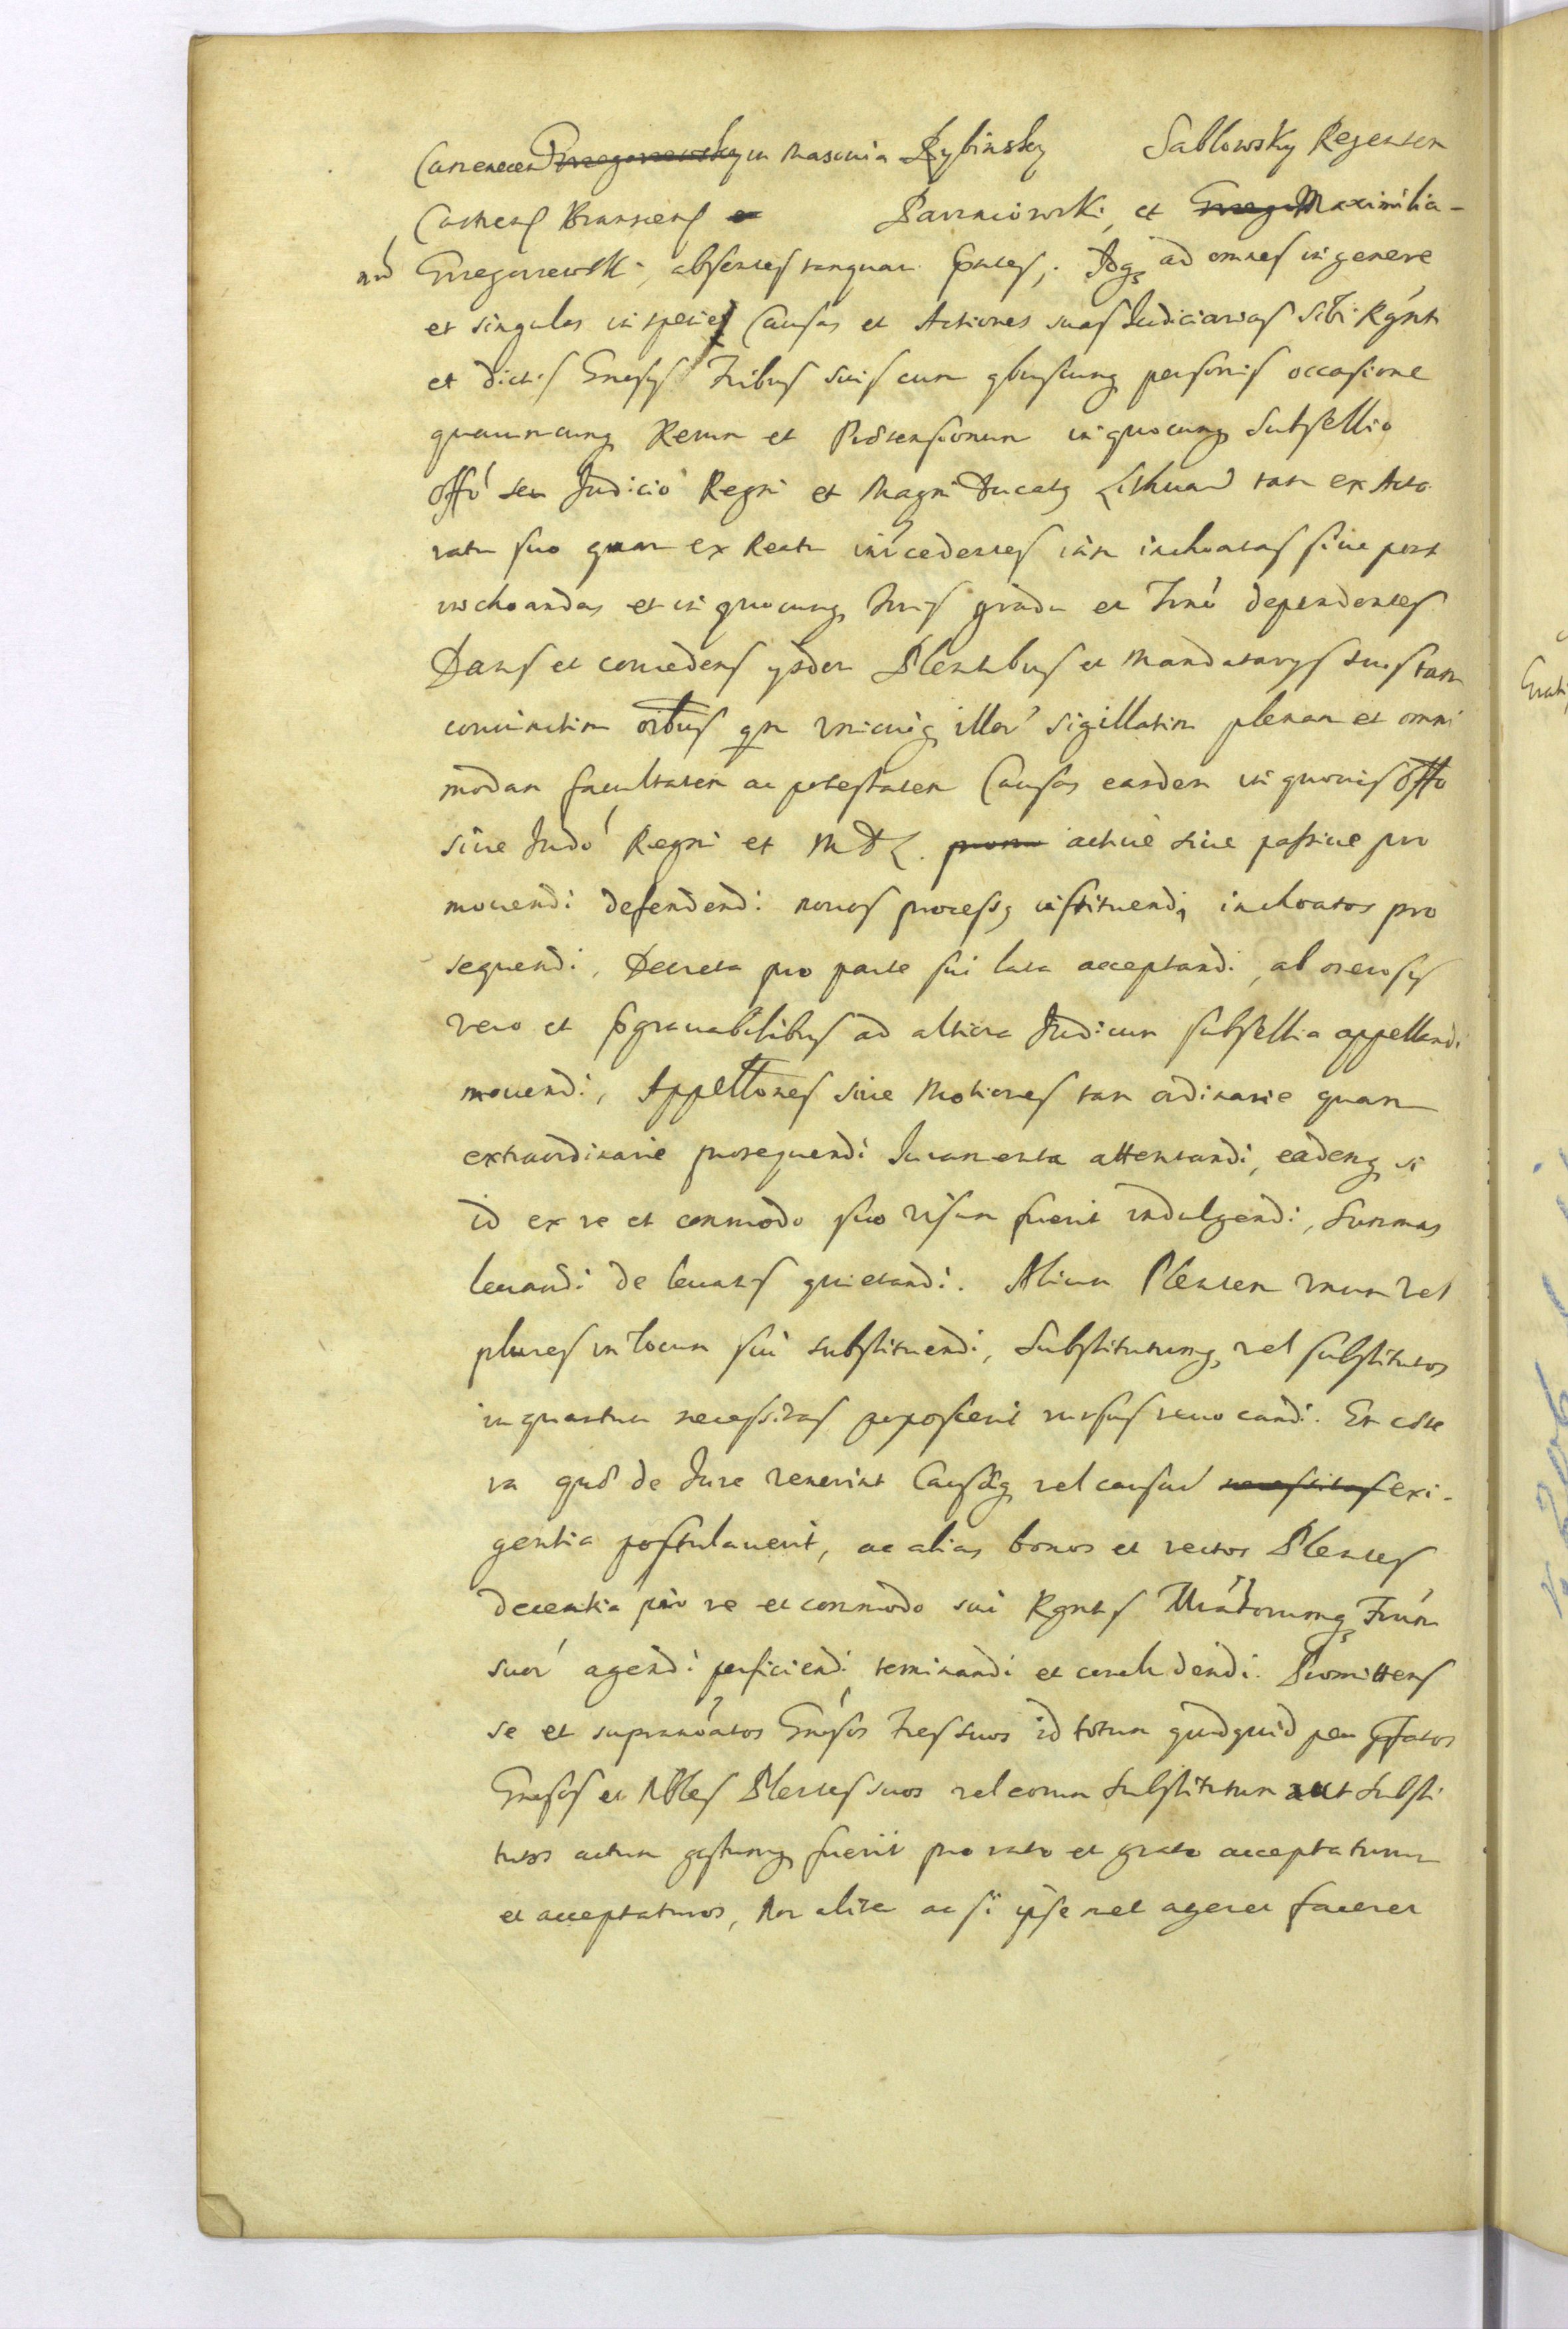 Camenecen Grzegorzewsky in Masouia Rybinsky Sablowsky Regenten
Castrens Bransciens et Parzniowski, et Grzego Maximilia-
nu Grzegorzewski, absentes tanquam pntes; Idq ad omnes in genere
et singulas in specie Causas et Actiones suas Judiciarias sibi Rgnti
et dictis Gnosis Fribus suis cum qbuscunq personis occasione
quaruncunq Rerum et Prætensionum in quocunq Subsellio
Offo seu Judicio Regni et Magni Ducatg Lithuan tam ex Acto
ratu suo quam ex Reatu intcedentes iam inchoatas siue post
inchoandas et in quocunq Juris gradu et Trno dependentes
Dans et concedens ysdem Plentibus et Mandatarys suis tam
coniunctim oibus qm vnicuiq illor sigillatim plenam et omni
modam facultatem ac potestatem Causas easdem in quouis Offo
siue Judo Regni et M D L. promo actiue siue passiue pro
mouendi defendendi nouos processg instituendi, inchoatos pro
sequendi, Decreta pro parte sui lata acceptandi, ab onerosis
vero et pgrauabilibus ad altiora Judicum subsellia appellandi
mouendi, Appellones siue Motiones tam ordinarie quam
extraordinarie prosequendi Juramenta attentandi, eademq si
id ex re et commodo suo visum fuerit indulgendi, Summas
leuandi de leuatis quietandi. Alium Plentem vnum vel
plures in locum sui substituendi, Substitutumq vel substitutos
in quantum necessitas poposcerit rursus reuocandi. Et cæte
ra quæ de Jure venerint Causæq vel causar necessitas exi-
gentia postulauerit, ac alias bonos et rectos Plentes
decentia pro re et commodo sui Rgntis Frum
suor agendi perficiendi terminandi et concludendi. Promittens
se et supranoatos Gnosos Fres suos id totum quidquid per pfatos
Gnosos et Nbles Plentes suos vel eorum Substitutum aut substi
tutos actum gestumq fuerit pro rato et grato acceptaturum
et acceptaturos, Non aliter ac si ipse met ageret faceret